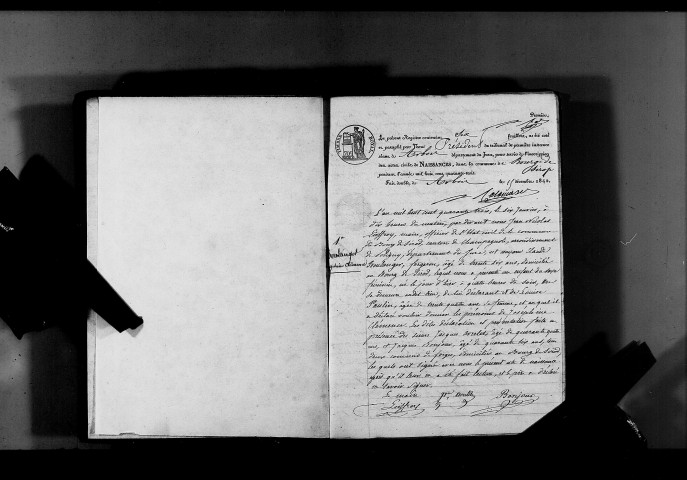 Première
Le présent Registre contenant six feuillets, a été coté
et paraphé par Nous Président du tribunal de première instance
séant à Arbois département du Jura, pour servir à l'inscription
des actes civils de NAISSANCES, dans la commune de Bourg de
Sirod
pendant l'année mil huit cent quarante-trois
Fait double, à Arbois le 15 décembre 1842.
1er
Boulanger
L'an mil huit cent quarante trois, le six Janvier, à
dix heures du matin, par devant nous Jean Nicolas
Loiffroy, maire, officier de l'état civil de la commune
de Bourg de Sirod, canton de Champagnole, arrondissement
de Poligny, département du Jura, est comparu Claude
Boulanger, forgeron, âgé de trente six ans, domicilié
au Bourg de Sirod, lequel nous a présenté un enfant du sexe
féminin, né le jour d'hier à quatre heures du soir, en
sa demeure audit lieu, de lui déclarant et de Louise
Paulin, âgée de trente quatre ans sa femme, et auquel il
a déclaré vouloir donner les prénoms de Josephine
Clémence. Les dites déclaration et présentation faites en
présence des sieurs Jacques âgé de quarante quatre
ans, et Jacques Bonjour, âgé de quarante six ans, tous
deux commis de forges, domiciliés au Bourg de Sirod
lesquels ont signé avec nous le présent acte de naissance
après qu'il leur en a été fait lecture, et le père a déclaré
ne savoir signer.
Le maire
Loiffroy Bonjour